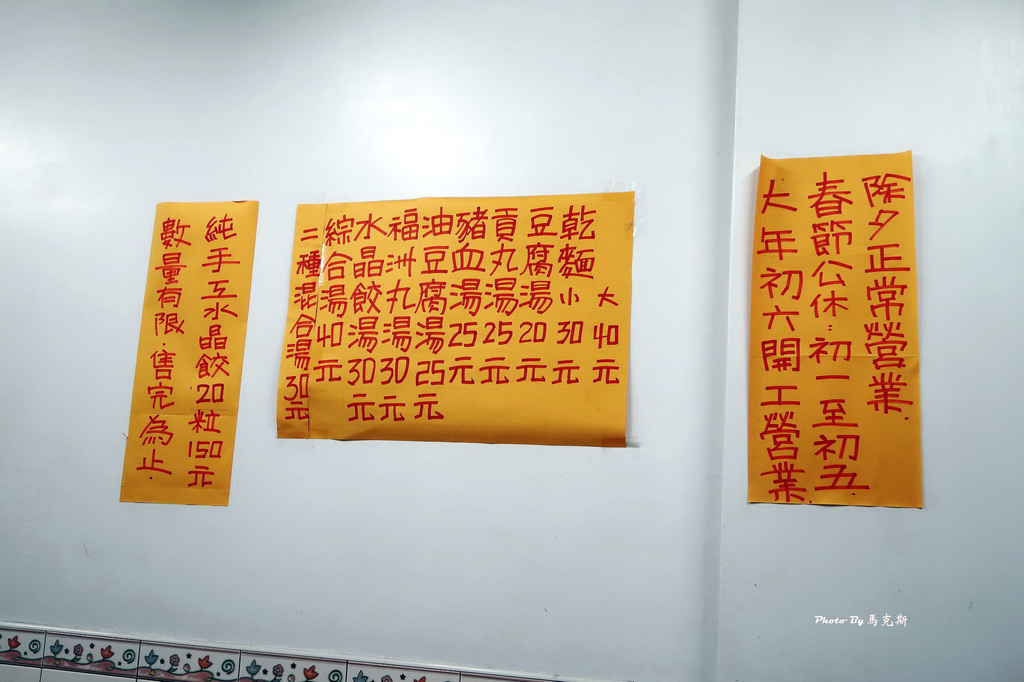 除夕正常營業.
春節公休:初一至初五.
大年初六開工營業
大40元
乾麵小30元
豆腐湯20元
貢丸湯25元
豬血湯25元
油豆腐湯25元
福洲丸湯30元
水晶餃湯30元
綜合湯40元
二種混合湯30元
純手工水晶餃20粒150元
數量有限.售完為止.
Photo By 馬克斯